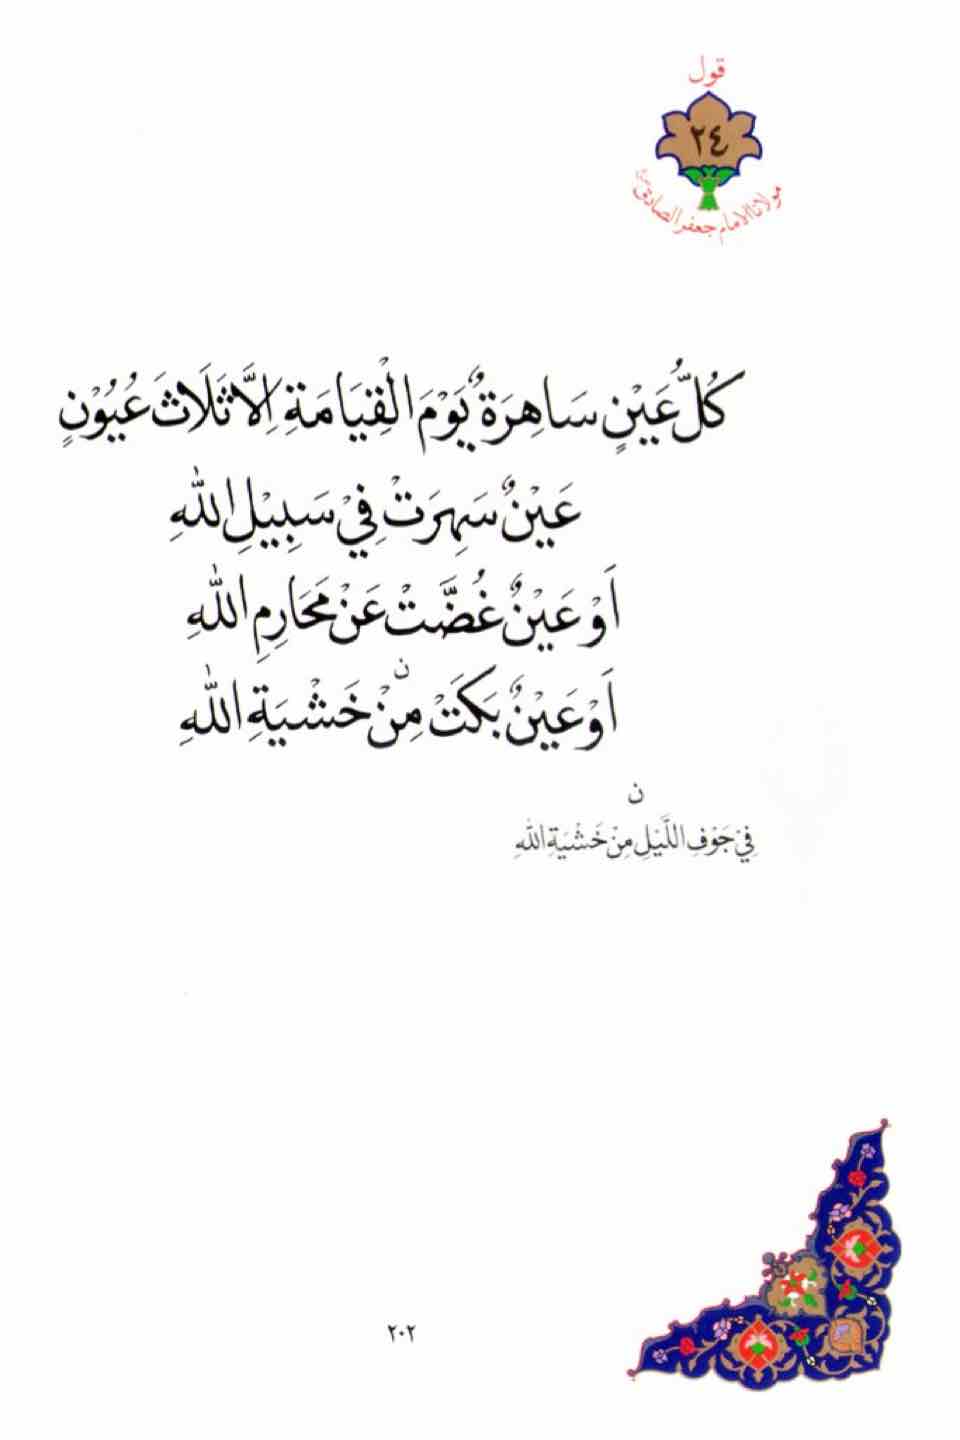 قول
٢٤
مولانا الامام جعفر الصادق
كُلُّ عَيْنٍ سَاهِرَةٌ يَوْمَ الْقِيَامَةِ اِلَّا ثَلَاثَ عُيُوْنٍ
عَيْنٌ سَهِرَتْ فِيْ سَبِيْلِ اللهِ
اَوْ عَيْنٌ غُضَّتْ عَنْ مَحَارِمِ اللهِ
اَوْ عَيْنٌ بَكَتْ مِنْ ن خَشْيَةِ اللهِ
ن
فِيْ جَوْفِ اللَّيْلِ مِنْ خَشْيَةِ اللهِ
٢٠٢